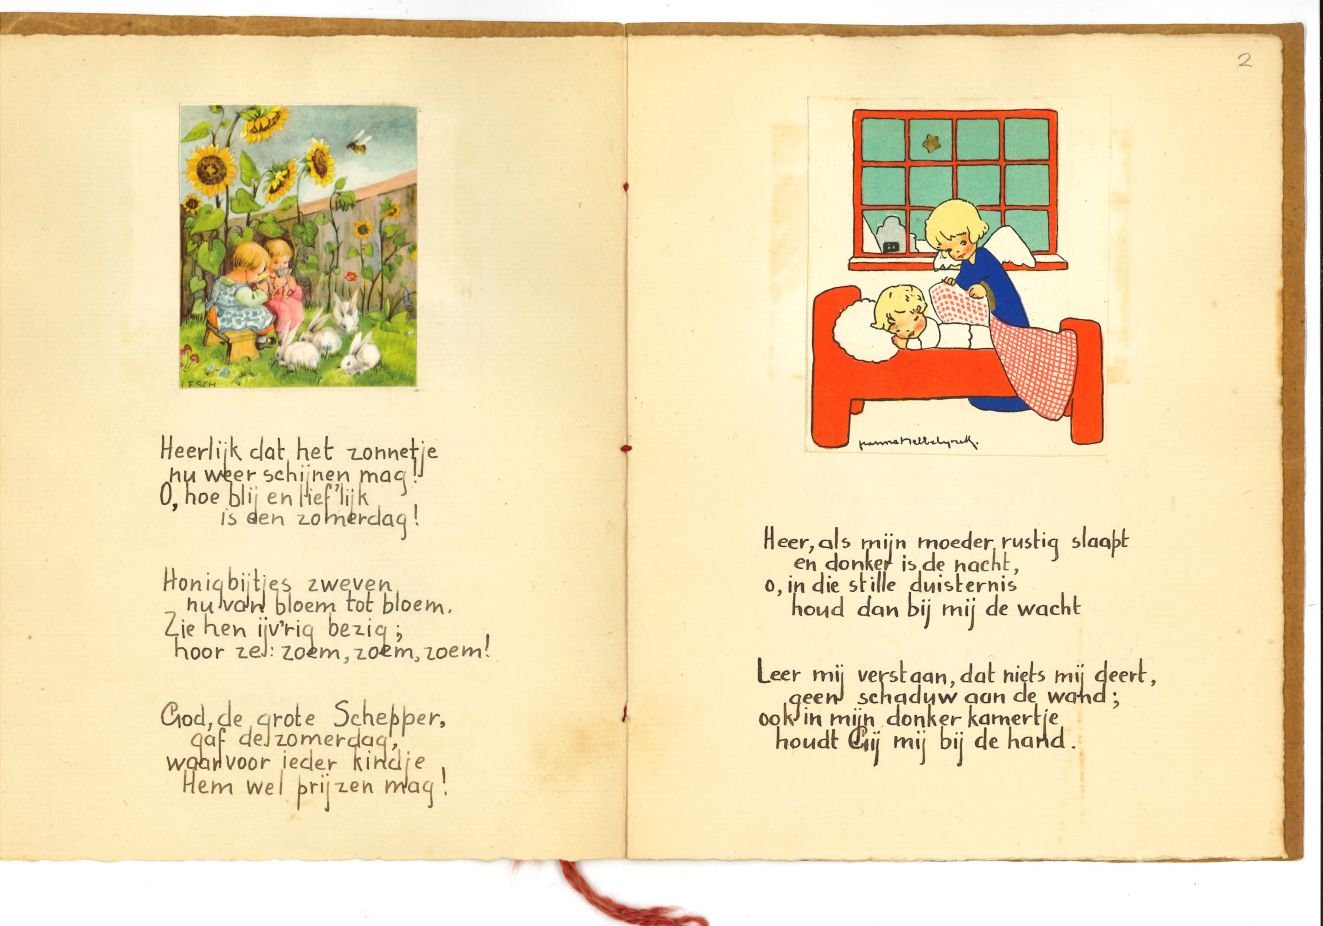 LESCH
Heerlijk dat het zonnetje
nu weer schijnen mag!
O, hoe blij en lief'lijk
is een zomerdag!
Honigbijtjes zweven
nu van bloem tot bloem.
Zie hen ijv'rig bezig;
hoor ze: zoem, zoem, zoem!
God, de grote Schepper,
gaf de zomerdag,
waarvoor ieder kindje
Hem wel prijzen mag!
2
Heer, als mijn moeder rustig slaapt
en donker is de nacht,
o, in die stille duisternis
houd dan bij mij de wacht
Leer mij verstaan, dat niets mij deert,
geen schaduw aan de wand;
ook in mijn donker kamertje
houdt Gij mij bij de hand.